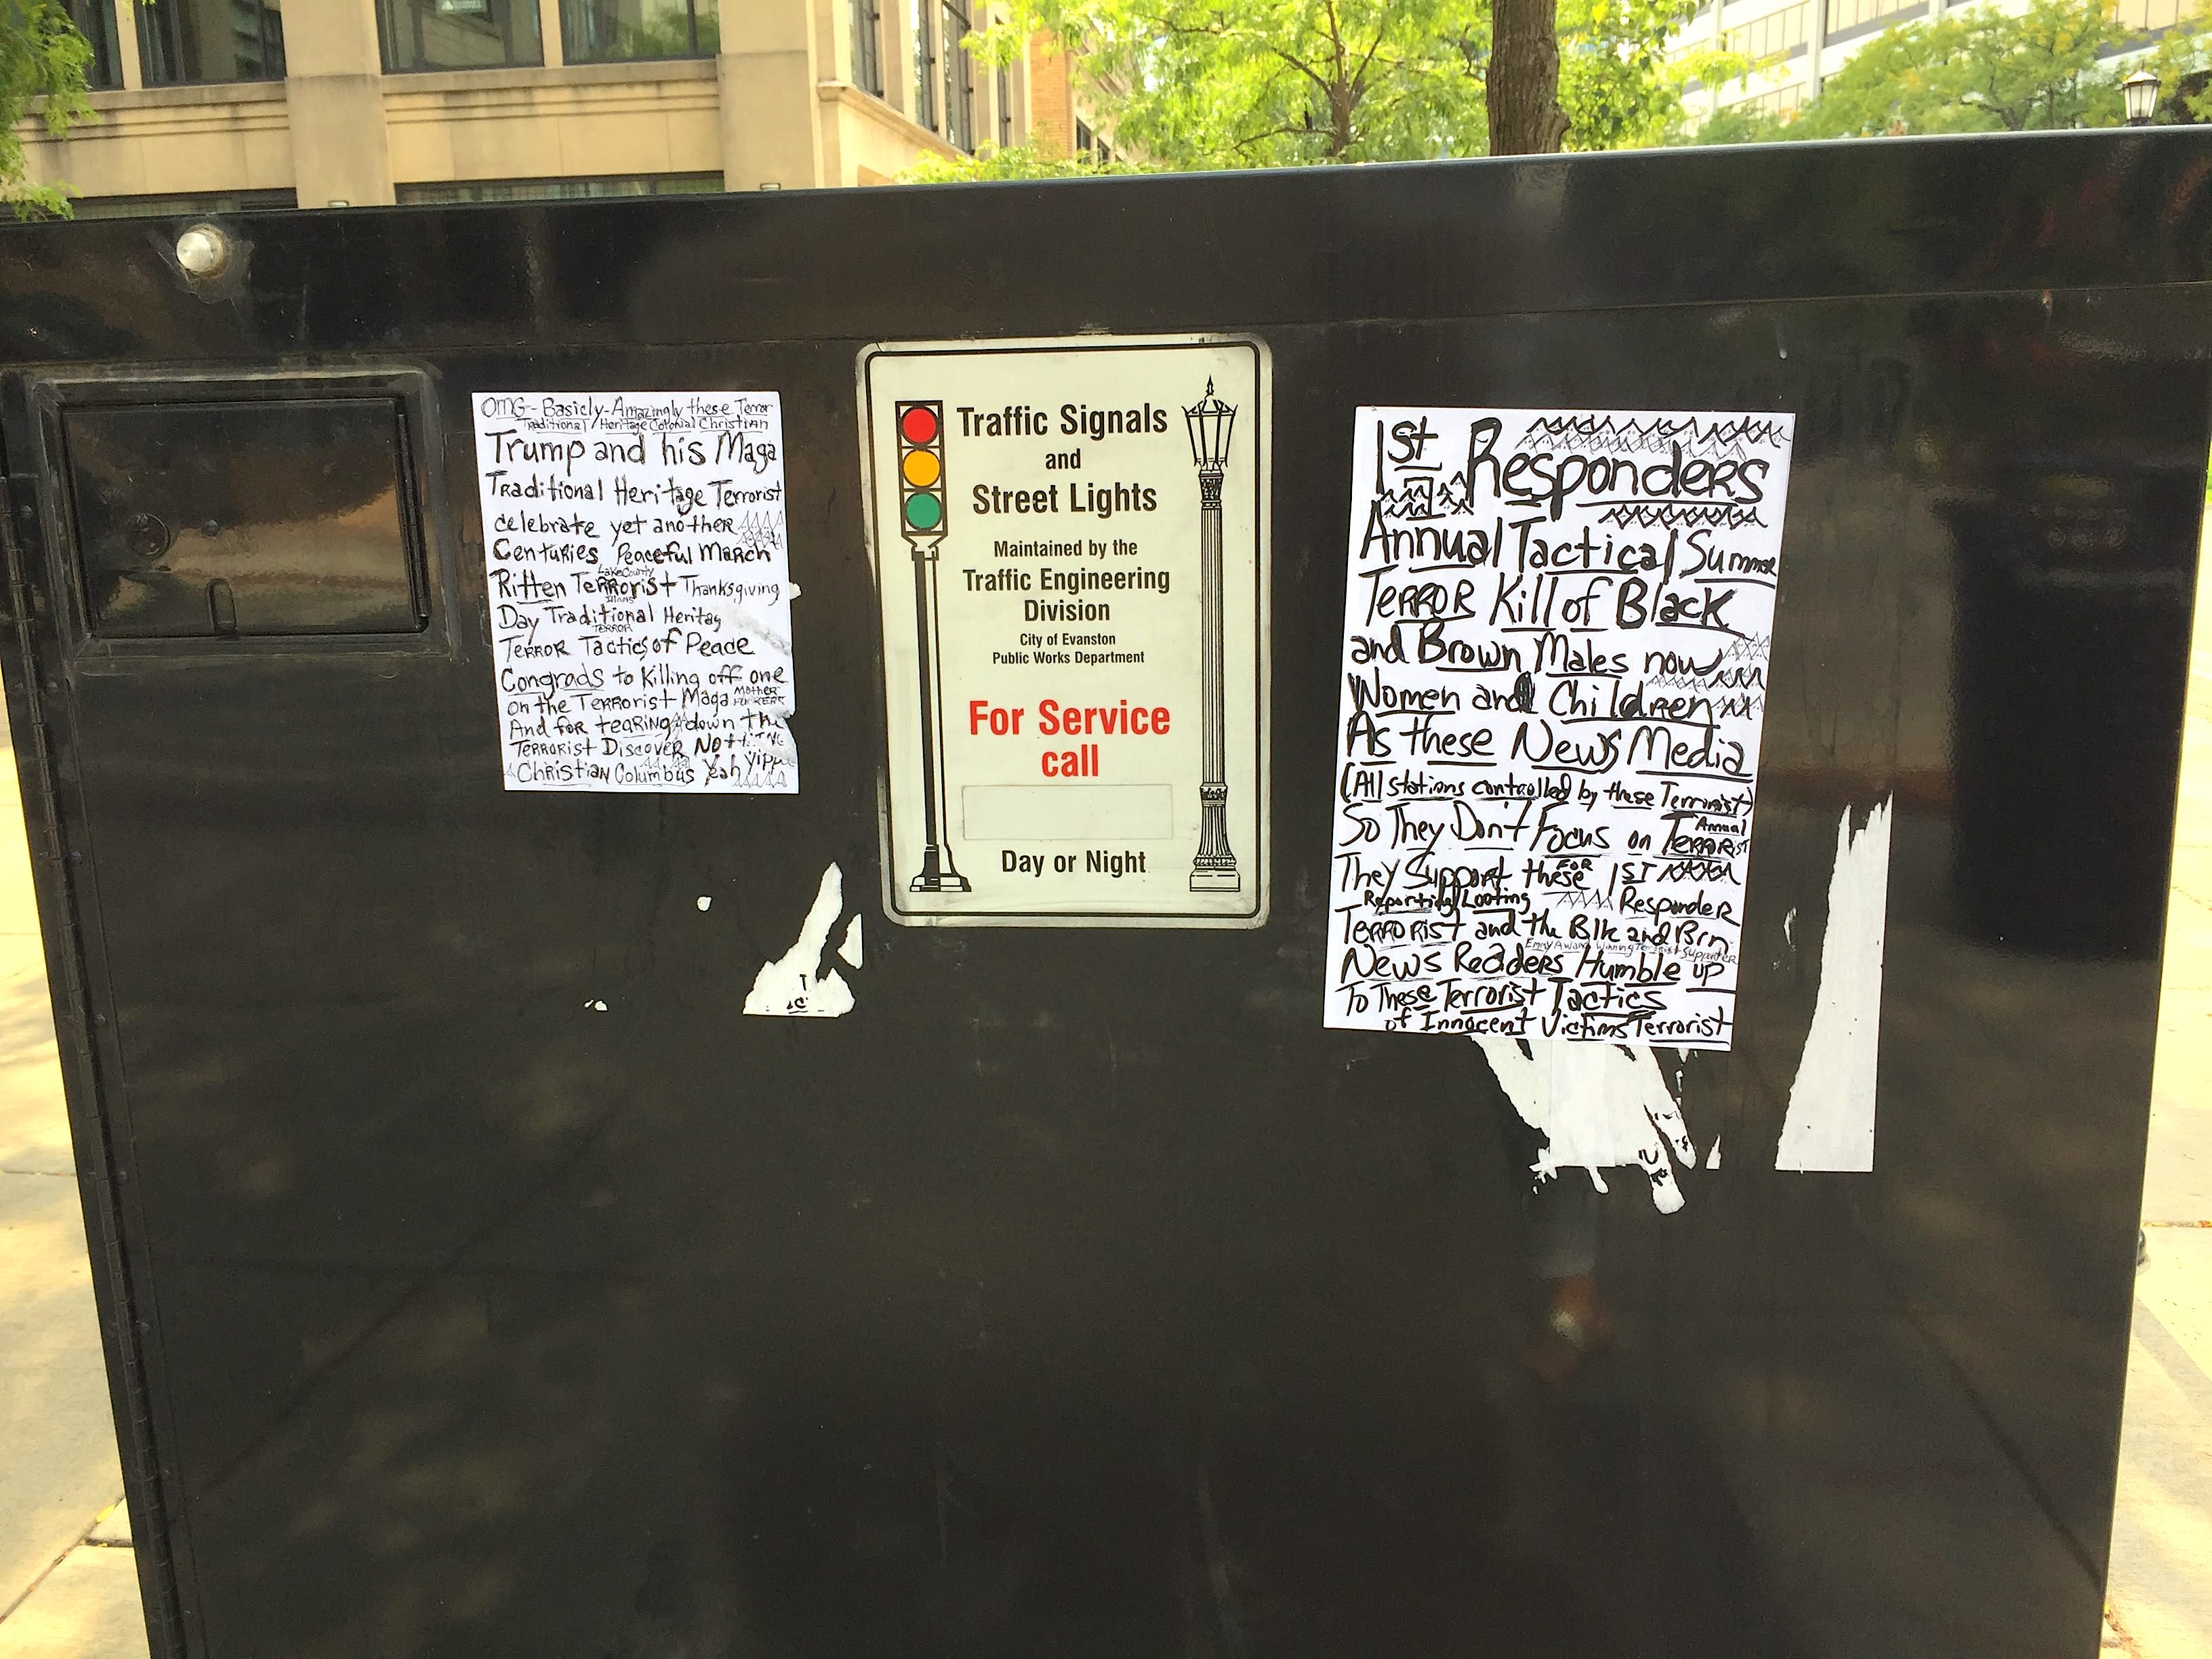 OMG-Basicly-Amazingly these Terror
Traditional/Heritage Colonial Christian
Trump and his Maga
Traditional Heritage Terrorist
celebrate yet another
Centuries Peaceful March
Lake County
Ritten Terrorist Thanksgiving
Day Traditional Heritag
TERROR
Terror Tactics of Peace
Congrads to Killing off one
on the Terrorist Maga Mother
And for tearing down the
Terrorist Discover
Christian Columbus Yeah
Traffic Signals
and
Street Lights
Maintained by the
Traffic Engineering
Division
City of Evanston
Public Works Department
For Service
call
Day or Night
1st Responders
Annual Tactical Summer
Terror Kill of Black
and Brown Males now
Women and Children
As these News Media
(All stations controlled by these Terrorist)
So They Don't Focus on Annual Terrorist
They Support these FOR 1ST
Reporting/Looting Responder
Terrorist and the Blk and Brn
Emmy Award Winning Terrorist Supporter
News Readers Humble up
To These Terrorist Tactics
of Innocent Victims Terrorist